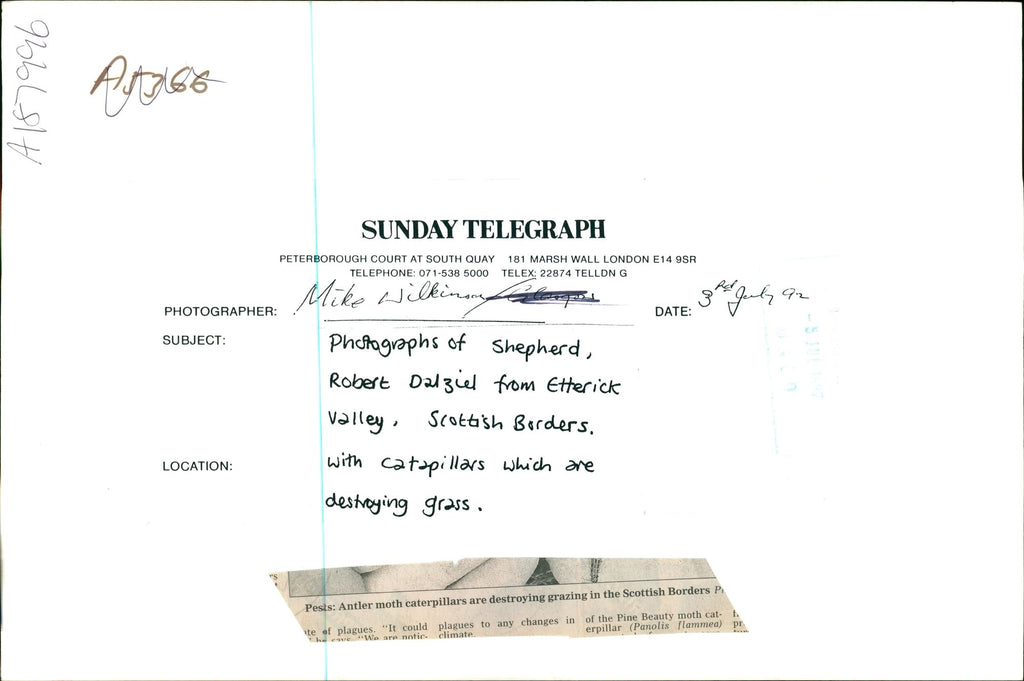 A187996
A5366
SUNDAY TELEGRAPH
PETERBOROUGH COURT AT SOUTH QUAY 181 MARSH WALL LONDON E14 9SR
TELEPHONE: 071-538 5000 TELEX: 22874 TELLDN G
PHOTOGRAPHER: Mike Wilkinson
DATE: 3rd July 92
SUBJECT: Photographs of Shepherd,
Robert Dalziel from Etterick
Valley, Scottish Borders.
LOCATION: with catapillars which are
destroying grass.
Pests: Antler moth caterpillars are destroying grazing in the Scottish Borders
te of plagues. "It could
he says. "We are notic-
plagues to any changes in
climate.
of the Pine Beauty moth cat-
erpillar (Panolis flammea)